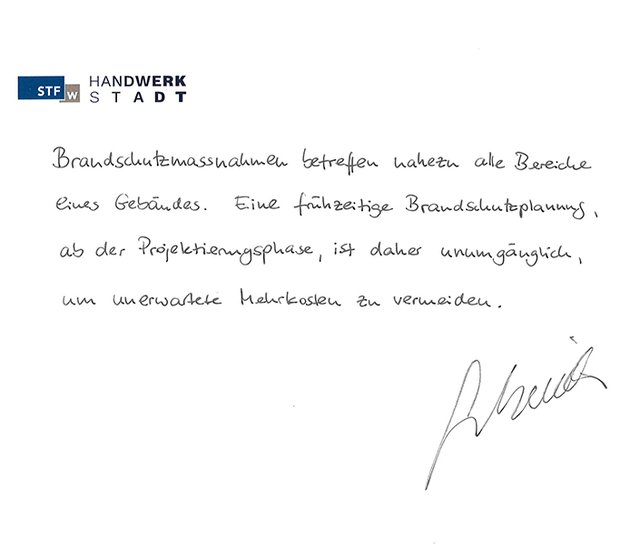 STF W HANDWERK
STADT
Brandschutzmassnahmen betreffen nahezu alle Bereiche
eines Gebäudes. Eine frühzeitige Brandschutzplanung,
ab der Projektierungsphase, ist daher unumgänglich,
um unerwartete Mehrkosten zu vermeiden.